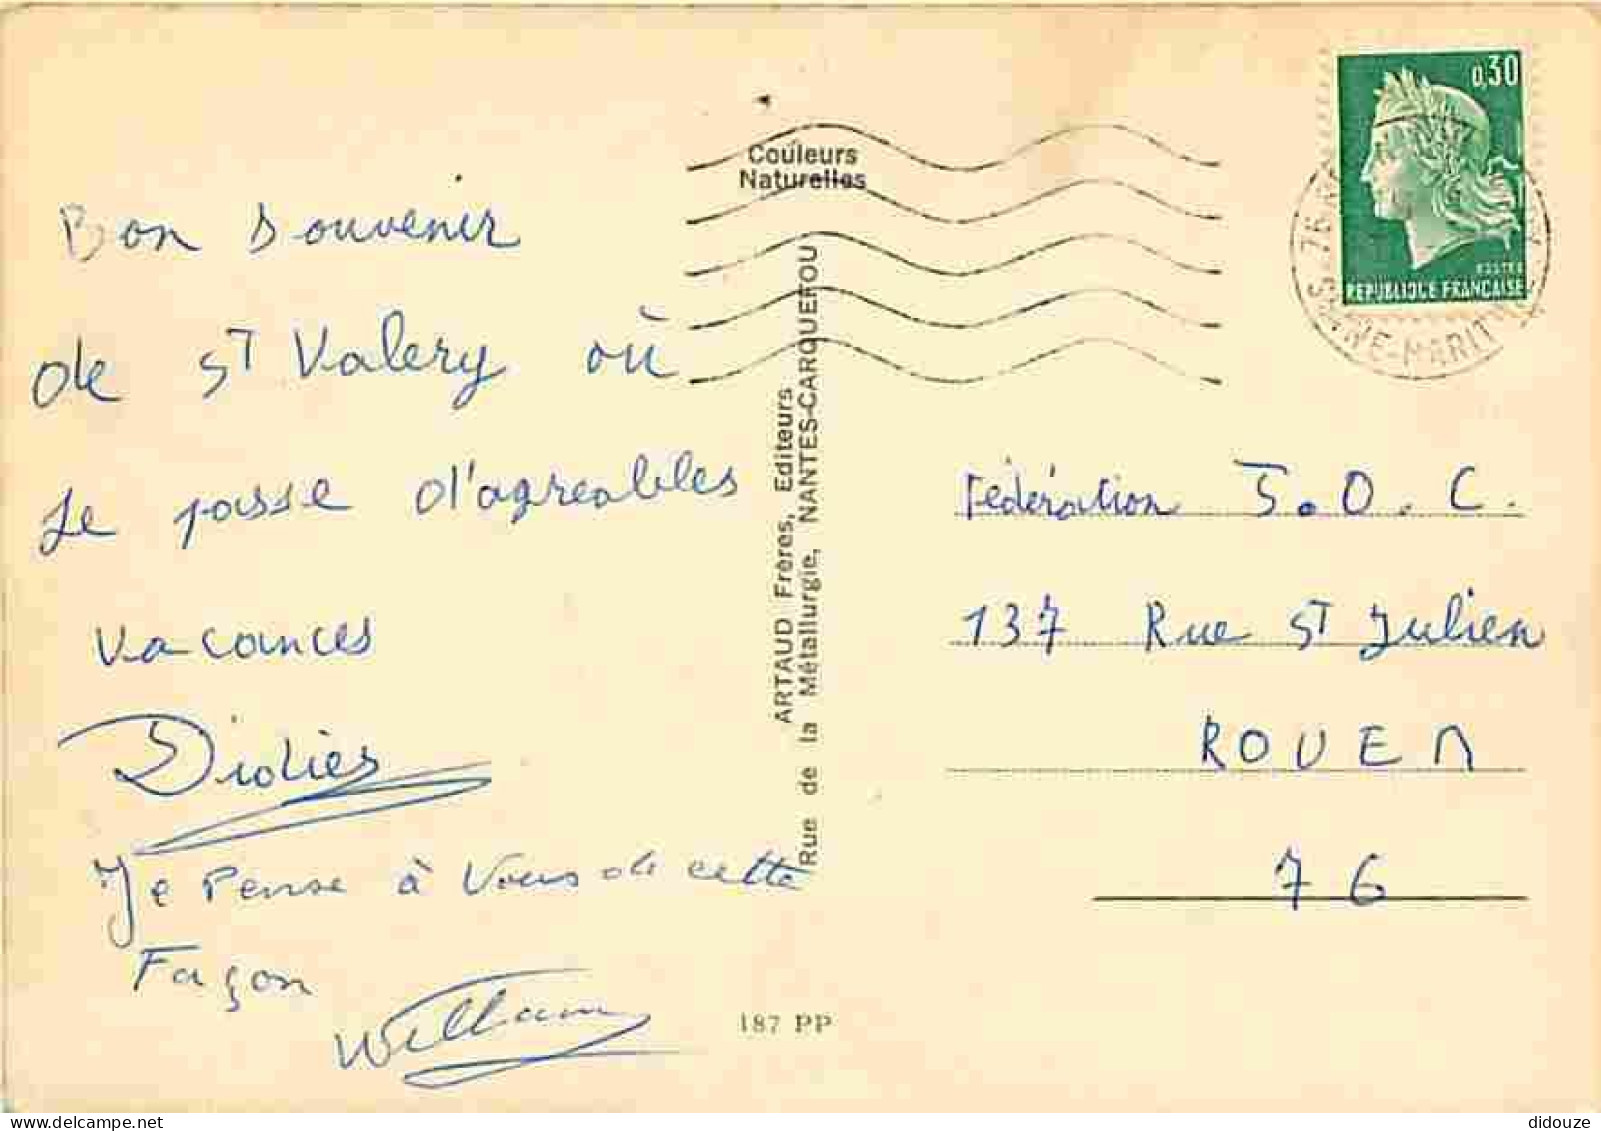 Bon souvenir
de ST Valery où
Je passe d'agreables
vacances
Didier
Je Pense à Vous de cette
Façon
William
Couleurs
Naturelles
ARTAUD Frères, Editeurs
Rue de la Métallurgie, NANTES-CARQUEFOU
187 PP
0,30
POSTES
REPUBLIQUE FRANÇAISE
76
SEINE-MARITIME
Fédération J.O.C.
137 Rue ST Julien
ROUEN
76
didouze